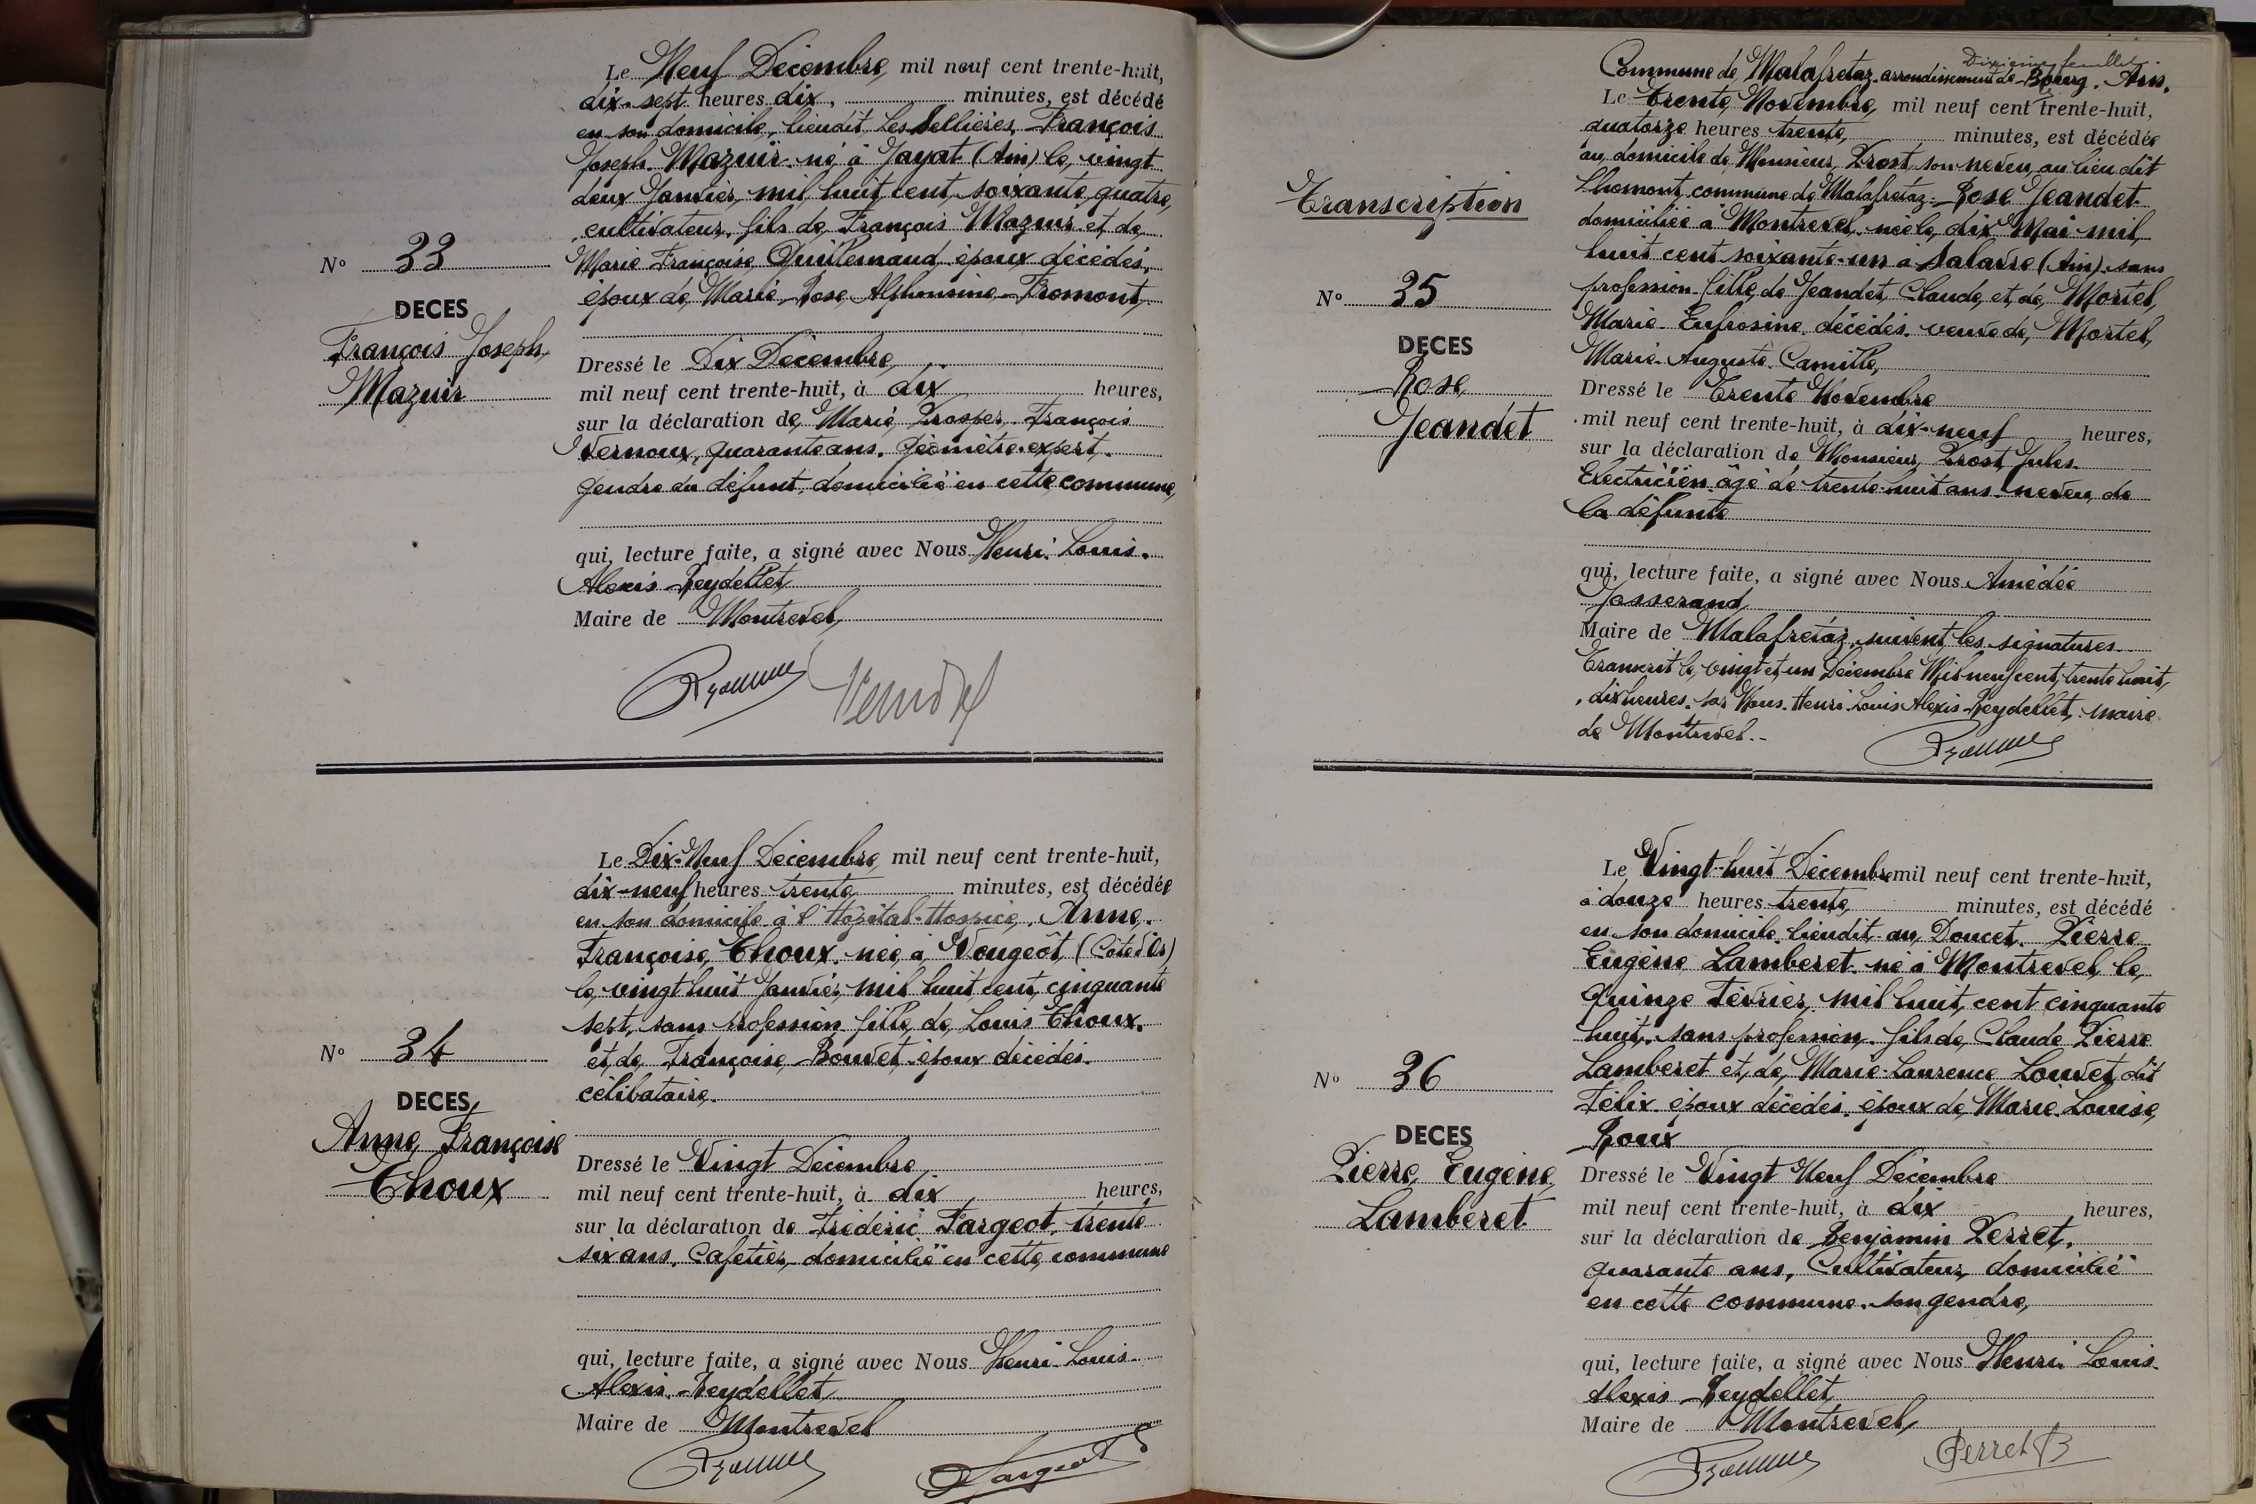 Le Neuf Décembre, mil neuf cent trente-huit,
dix-sept heures dix, minutes, est décédé
en son domicile, lieudit Les Sellières, François
Joseph Mazuir né à Jayat (Ain) le vingt
deux Janvier, mil huit cent soixante quatre,
cultivateur, fils de François Mazuir et de
Marie Françoise Quillemaud, époux décédés,
époux de Marie Rose Alphonsine Fromont,
No 33
DECES
François Joseph
Mazuir
Dressé le Dix Décembre
mil neuf cent trente-huit, à dix heures,
sur la déclaration de Marie, Prosper, François
Vernoux, quarante ans, Géomètre-expert,
gendre du défunt, domicilié en cette commune,
qui, lecture faite, a signé avec Nous Henri Louis
Alexis Reydellet
Maire de Montrevel
Le Dix-Neuf Décembre, mil neuf cent trente-huit,
dix-neuf heures trente minutes, est décédée
en son domicile à l'Hôpital-Hospice, Anne
Françoise Choux, née à Vougeôt (Côte d'Or)
le vingt huit Janvier, mil huit cent cinquante
sept, sans profession fille de Louis Choux
et de Françoise Bouvet époux décédés.
célibataire.
No 34
DECES
Anne Françoise
Choux
Dressé le Vingt Décembre
mil neuf cent trente-huit, à dix heures,
sur la déclaration de Frédéric Fargeot, trente
six ans, Cafetier, domicilié en cette commune
qui, lecture faite, a signé avec Nous Henri Louis
Alexis Reydellet
Maire de Montrevel
Fargeot
Dixième feuillet
Commune de Malafretaz arrondissement de Bourg. Ain.
Le trente Novembre, mil neuf cent trente-huit,
quatorze heures trente, minutes, est décédée
au domicile de Monsieur Prost, son neveu, au lieu dit
Lhomont commune de Malafretaz, Rose Jeandet
domiciliée à Montrevel, née le dix Mai mil
huit cent soixante-un à Salavre (Ain), sans
profession, fille de Jeandet Claude, et de Mortel,
Marie Eufrosine décédés, veuve de Mortel,
Marie-Auguste Camille,
Transcription
No 35
DECES
Rose
Jeandet
Dressé le Trente Novembre
mil neuf cent trente-huit, à dix-neuf heures,
sur la déclaration de Monsieur Prost Jules
Electricien âgé de trente-huit ans, neveu de
la défunte
qui, lecture faite, a signé avec Nous Amédée
Josserand
Maire de Malafretaz, suivent les signatures.
Transcrit le vingt et un Décembre Mil neuf cent trente huit,
dix heures, par Nous Henri Louis Alexis Reydellet, maire
de Montrevel.-
Le Vingt-huit Décembre mil neuf cent trente-huit,
à douze heures trente, minutes, est décédé
en son domicile, lieudit au Doucet. Pierre
Eugène Lamberet né à Montrevel le
quinze Février, mil huit cent cinquante
huit, sans profession, fils de Claude Pierre
Lamberet et de Marie Laurence Louvet dit
Félix époux décédés. époux de Marie Louise
Roux
No 36
DECES
Pierre Eugène
Lamberet
Dressé le Vingt Neuf Décembre
mil neuf cent trente-huit, à dix heures,
sur la déclaration de Benjamin Perret,
quarante ans, Cultivateur, domicilié
en cette commune. son gendre,
qui, lecture faite, a signé avec Nous Henri Louis
Alexis Reydellet
Maire de Montrevel
Perret B